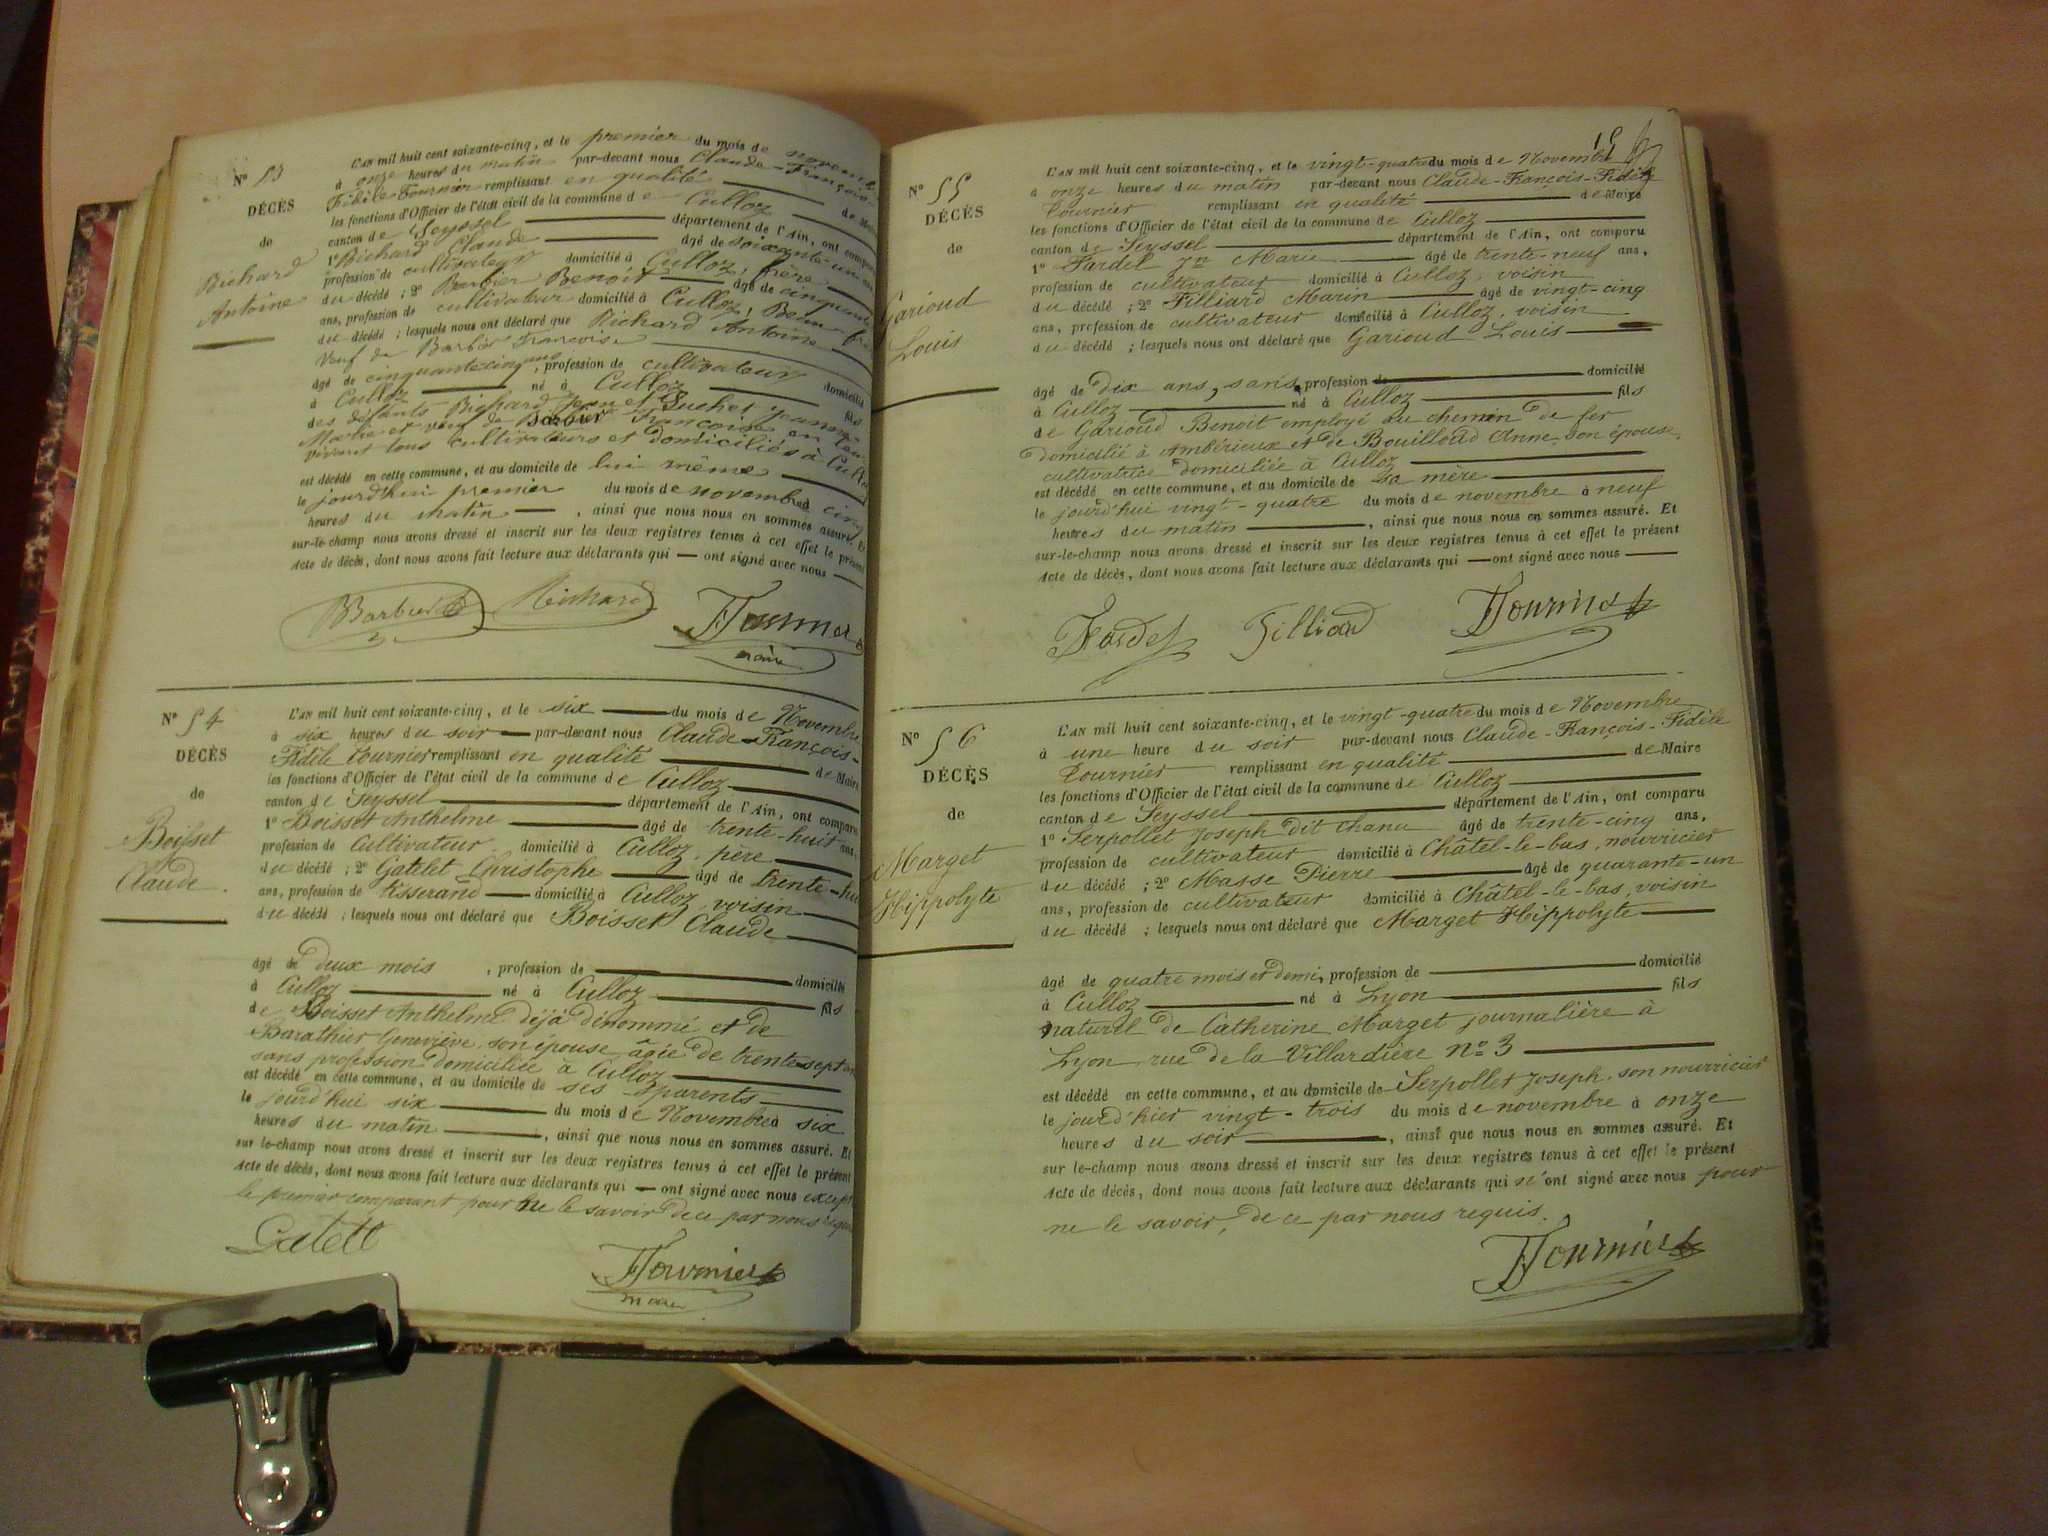 N° 53
DÉCÈS
de
Richard
Antoine
L'AN mil huit cent soixante-cinq, et le premier du mois de novembre
à onze heures du matin par-devant nous Claude-François-
Fidèle Tournier remplissant en qualité de Maire
les fonctions d'Officier de l'état civil de la commune de Culloz
canton de Seyssel département de l'Ain, ont comparu
1° Richard Claude âgé de soixante-un ans,
profession de cultivateur domicilié à Culloz, frère
du décédé ; 2° Barbier Benoit âgé de cinquante
ans, profession de cultivateur domicilié à Culloz, Beau-frère
du décédé ; lesquels nous ont déclaré que Richard Antoine
Veuf de Barbier Françoise
âgé de cinquante cinq ans, profession de cultivateur domicilié
à Culloz né à Culloz fils
des défunts Richard Jean et Suchet Jeanne-
Marie et veuf de Barbier Françoise en leur
vivant tous cultivateurs et domiciliés à Culloz
est décédé en cette commune, et au domicile de lui même
le jourd'hui premier du mois de novembre à cinq
heures du matin , ainsi que nous nous en sommes assuré. Et
sur-le-champ nous avons dressé et inscrit sur les deux registres tenus à cet effet le présent
Acte de décès, dont nous avons fait lecture aux déclarants qui — ont signé avec nous
Barbier B Richard Tournier
maire
N° 54
DÉCÈS
de
Boisset
Claude
L'AN mil huit cent soixante-cinq, et le six du mois de Novembre
à six heures du soir par-devant nous Claude-François-
Fidèle Tournier remplissant en qualité de Maire
les fonctions d'Officier de l'état civil de la commune de Culloz
canton de Seyssel département de l'Ain, ont comparu
1° Boisset Anthelme âgé de trente-huit ans,
profession de Cultivateur domicilié à Culloz, père
du décédé ; 2° Gatelet Christophe âgé de trente-huit
ans, profession de tisserand domicilié à Culloz, voisin
du décédé ; lesquels nous ont déclaré que Boisset Claude
âgé de deux mois , profession de domicilié
à Culloz né à Culloz fils
de Boisset Anthelme déjà dénommé et de
Barathier Geneviève, son épouse âgée de trente-sept ans
sans profession domiciliée à Culloz
est décédé en cette commune, et au domicile de ses parents
le jourd'hui six du mois de Novembre à six
heures du matin , ainsi que nous nous en sommes assuré. Et
sur le-champ nous avons dressé et inscrit sur les deux registres tenus à cet effet le présent
Acte de décès, dont nous avons fait lecture aux déclarants qui — ont signé avec nous excepté
le premier comparant pour ne le savoir de ce par nous requis
Tournier
maire
15
N° 55
DÉCÈS
de
Garioud
Louis
L'AN mil huit cent soixante-cinq, et le vingt-quatre du mois de Novembre
à onze heures du matin par-devant nous Claude-François-Fidèle
Tournier remplissant en qualité de Maire
les fonctions d'Officier de l'état civil de la commune de Culloz
canton de Seyssel département de l'Ain, ont comparu
1° Fardel Jn Marie âgé de trente-neuf ans,
profession de cultivateur domicilié à Culloz, voisin
du décédé ; 2° Filliard Marin âgé de vingt-cinq
ans, profession de cultivateur domicilié à Culloz, voisin
du décédé ; lesquels nous ont déclaré que Garioud Louis
âgé de dix ans, sans profession de domicilié
à Culloz né à Culloz fils
de Garioud Benoit employé au chemin de fer
domicilié à Ambérieux et de Bouilloud Anne, son épouse,
cultivatrice domiciliée à Culloz
est décédé en cette commune, et au domicile de sa mère
le jourd'hui vingt-quatre du mois de novembre à neuf
heures du matin , ainsi que nous nous en sommes assuré. Et
sur-le-champ nous avons dressé et inscrit sur les deux registres tenus à cet effet le présent
Acte de décès, dont nous avons fait lecture aux déclarants qui — ont signé avec nous
Fardel Filliard Tournier
N° 56
DÉCÈS
de
Marget
Hippolyte
L'AN mil huit cent soixante-cinq, et le vingt-quatre du mois de Novembre
à une heure du soir par-devant nous Claude-François-Fidèle
Tournier remplissant en qualité de Maire
les fonctions d'Officier de l'état civil de la commune de Culloz
canton de Seyssel département de l'Ain, ont comparu
1° Serpollet Joseph dit Chana âgé de trente-cinq ans,
profession de cultivateur domicilié à Châtel-le-bas, nourricier
du décédé ; 2° Masse Pierre âgé de quarante-un
ans, profession de cultivateur domicilié à Châtel-le-bas, voisin
du décédé ; lesquels nous ont déclaré que Marget Hippolyte
âgé de quatre mois et demi, profession de domicilié
à Culloz né à Lyon fils
naturel de Catherine Marget journalière à
Lyon, rue de la Villardière n° 3
est décédé en cette commune, et au domicile de Serpollet Joseph, son nourricier
le jourd'hier vingt-trois du mois de novembre à onze
heures du soir , ainsi que nous nous en sommes assuré. Et
sur le-champ nous avons dressé et inscrit sur les deux registres tenus à cet effet le présent
Acte de décès, dont nous avons fait lecture aux déclarants qui n'ont signé avec nous pour
ne le savoir, de ce par nous requis.
Tournier